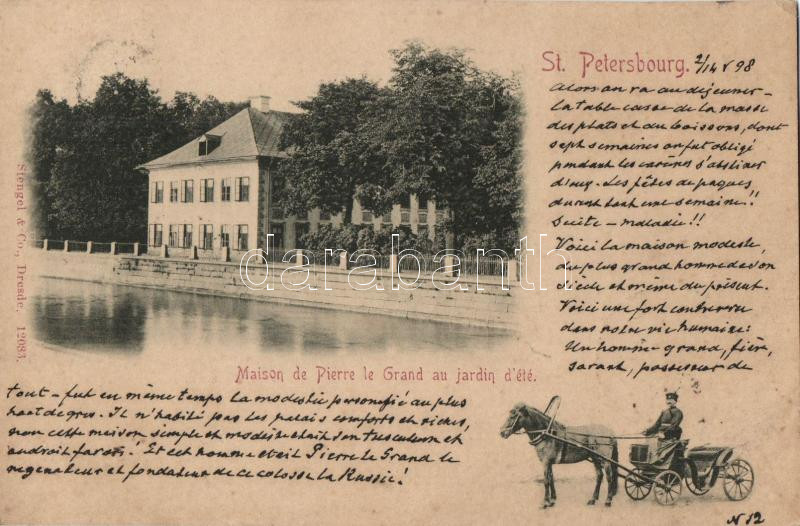 St. Petersbourg. 2/14 V 98
Alors on va au déjeuner -
la table casse de la masse
des plats et du boissons, dont
sept semaines on fut obligé
pendant les carêmes s'abstiner
d'eux. Les fêtes de paques
durent tout une semaine!!
Suite - maladie!!
Voici la maison modeste,
du plus grand homme de son
siecle et même du présent.
Voici une fort
dans notre vie humaine:
Un homme grand, fière,
savant, possesseur de
Stengel & Co., Dresde. 12083.
darabanth.com
Maison de Pierre le Grand au jardin d'été.
tout - fut en même temps la modestie personifié au plus
haut degres. Il n'habité pas les palais comforts et riches,
non cette maison simple et modeste était son tusculum et
endroit favori! Et cet homme était Pierre le Grand le
regenateur et fondateur de ce colosse la Russie!
N 12